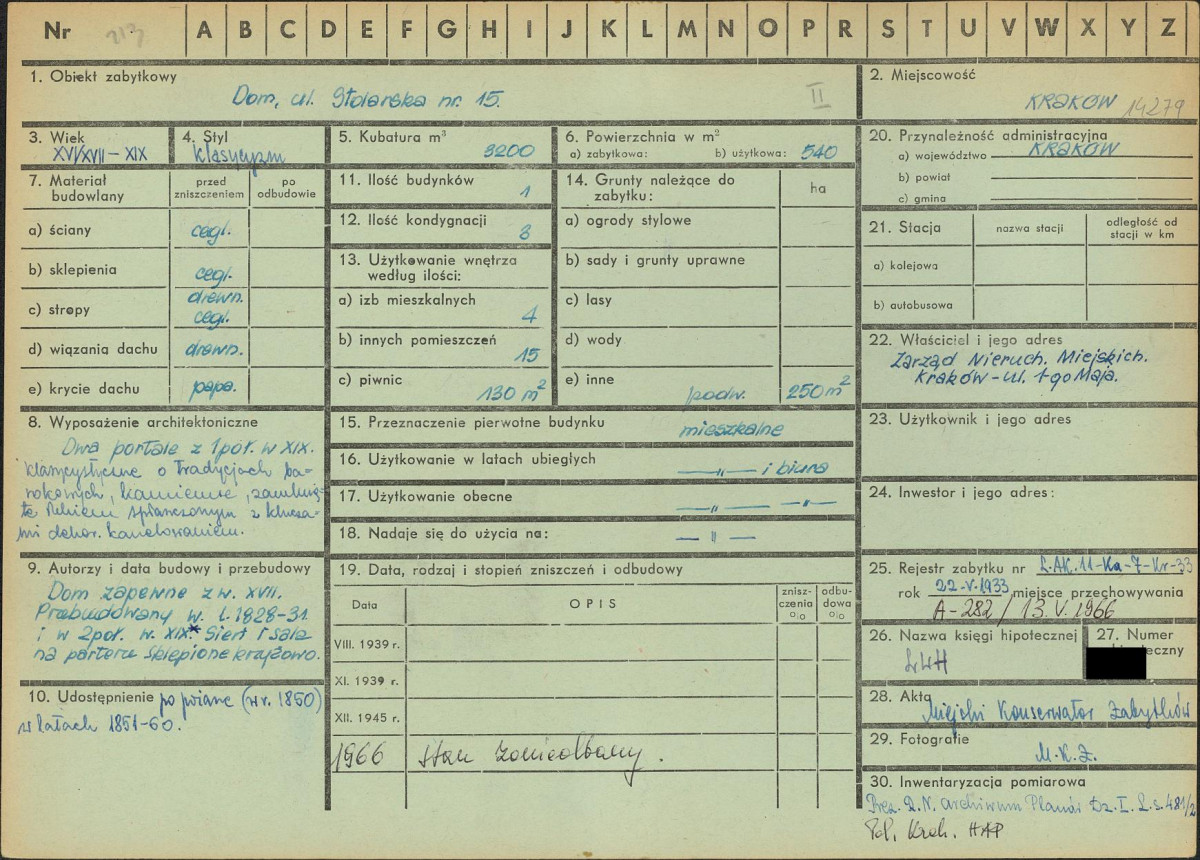 Nr 213 A B C D E F G H I J K L M N O P R S T U V W X Y Z
1. Obiekt zabytkowy
Dom, ul. Stolarska nr. 15.
II
2. Miejscowość
KRAKÓW 14279
3. Wiek
XVI/XVII – XIX
4. Styl
klasycyzm
5. Kubatura m³
3200
6. Powierzchnia w m²
a) zabytkowa: b) użytkowa: 540
7. Materiał budowlany
przed zniszczeniem
po odbudowie
a) ściany cegl.
b) sklepienia cegl.
c) stropy drewn. cegl.
d) wiązania dachu drewn.
e) krycie dachu papa.
8. Wyposażenie architektoniczne
Dwa portale z 1 poł. w XIX.
klasycystyczne o tradycjach ba-
rokowych, kamienne, zamknię-
te łukiem spłaszczonym z klucza-
mi dekor. kanelowaniem.
9. Autorzy i data budowy i przebudowy
Dom zapewne z w. XVII.
Przebudowany w l. 1828-31
i w 2 poł. w. XIX.* Sień i sala
na parterze sklepione krzyżowo.
10. Udostępnienie
po pożarze (w r. 1850)
w latach 1851-60.
11. Ilość budynków
1
12. Ilość kondygnacji
3
13. Użytkowanie wnętrza według ilości:
a) izb mieszkalnych
4
b) innych pomieszczeń
15
c) piwnic
130 m²
14. Grunty należące do zabytku:
ha
a) ogrody stylowe
b) sady i grunty uprawne
c) lasy
d) wody
e) inne podw. 250 m²
15. Przeznaczenie pierwotne budynku
mieszkalne
16. Użytkowanie w latach ubiegłych
—"— i biura
17. Użytkowanie obecne
—"— —"—
18. Nadaje się do użycia na:
—"—
19. Data, rodzaj i stopień zniszczeń i odbudowy
Data
OPIS
znisz-czenia %
odbu-dowa %
VIII. 1939 r.
XI. 1939 r.
XII. 1945 r.
1966 Stan zaniedbany.
20. Przynależność administracyjna
a) województwo KRAKÓW
b) powiat
c) gmina
21. Stacja
nazwa stacji
odległość od stacji w km
a) kolejowa
b) autobusowa
22. Właściciel i jego adres
Zarząd Nieruch. Miejskich.
Kraków – ul. 1-go Maja.
23. Użytkownik i jego adres
24. Inwestor i jego adres:
25. Rejestr zabytku nr L.AK.11-Ka-7-Kr-33
rok 22-V-1933 miejsce przechowywania
A-282 / 13. V. 1966
26. Nazwa księgi hipotecznej
LWH
27. Numer
28. Akta
Miejski Konserwator Zabytków
29. Fotografie
M.K.Z.
30. Inwentaryzacja pomiarowa
Prez. R.N. Archiwum Planów Dz. I. L.s. 481/2
Pol. Krak. HAP